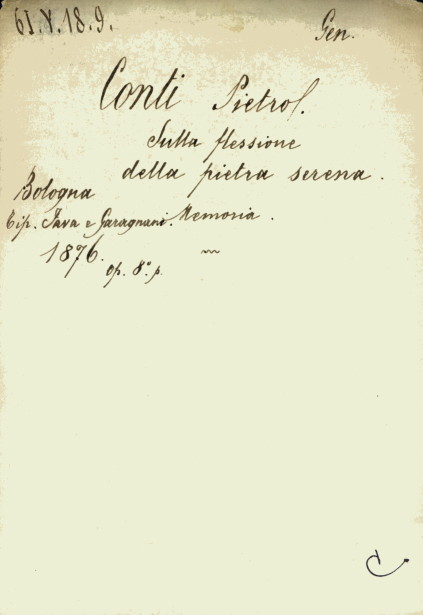 61.V.18.9.
Gen.
Conti Pietro.
Sulla flessione
della pietra serena.
Memoria.
Bologna
Tip. Fava e Garagnani.
1876.
op. 8.° p.
C